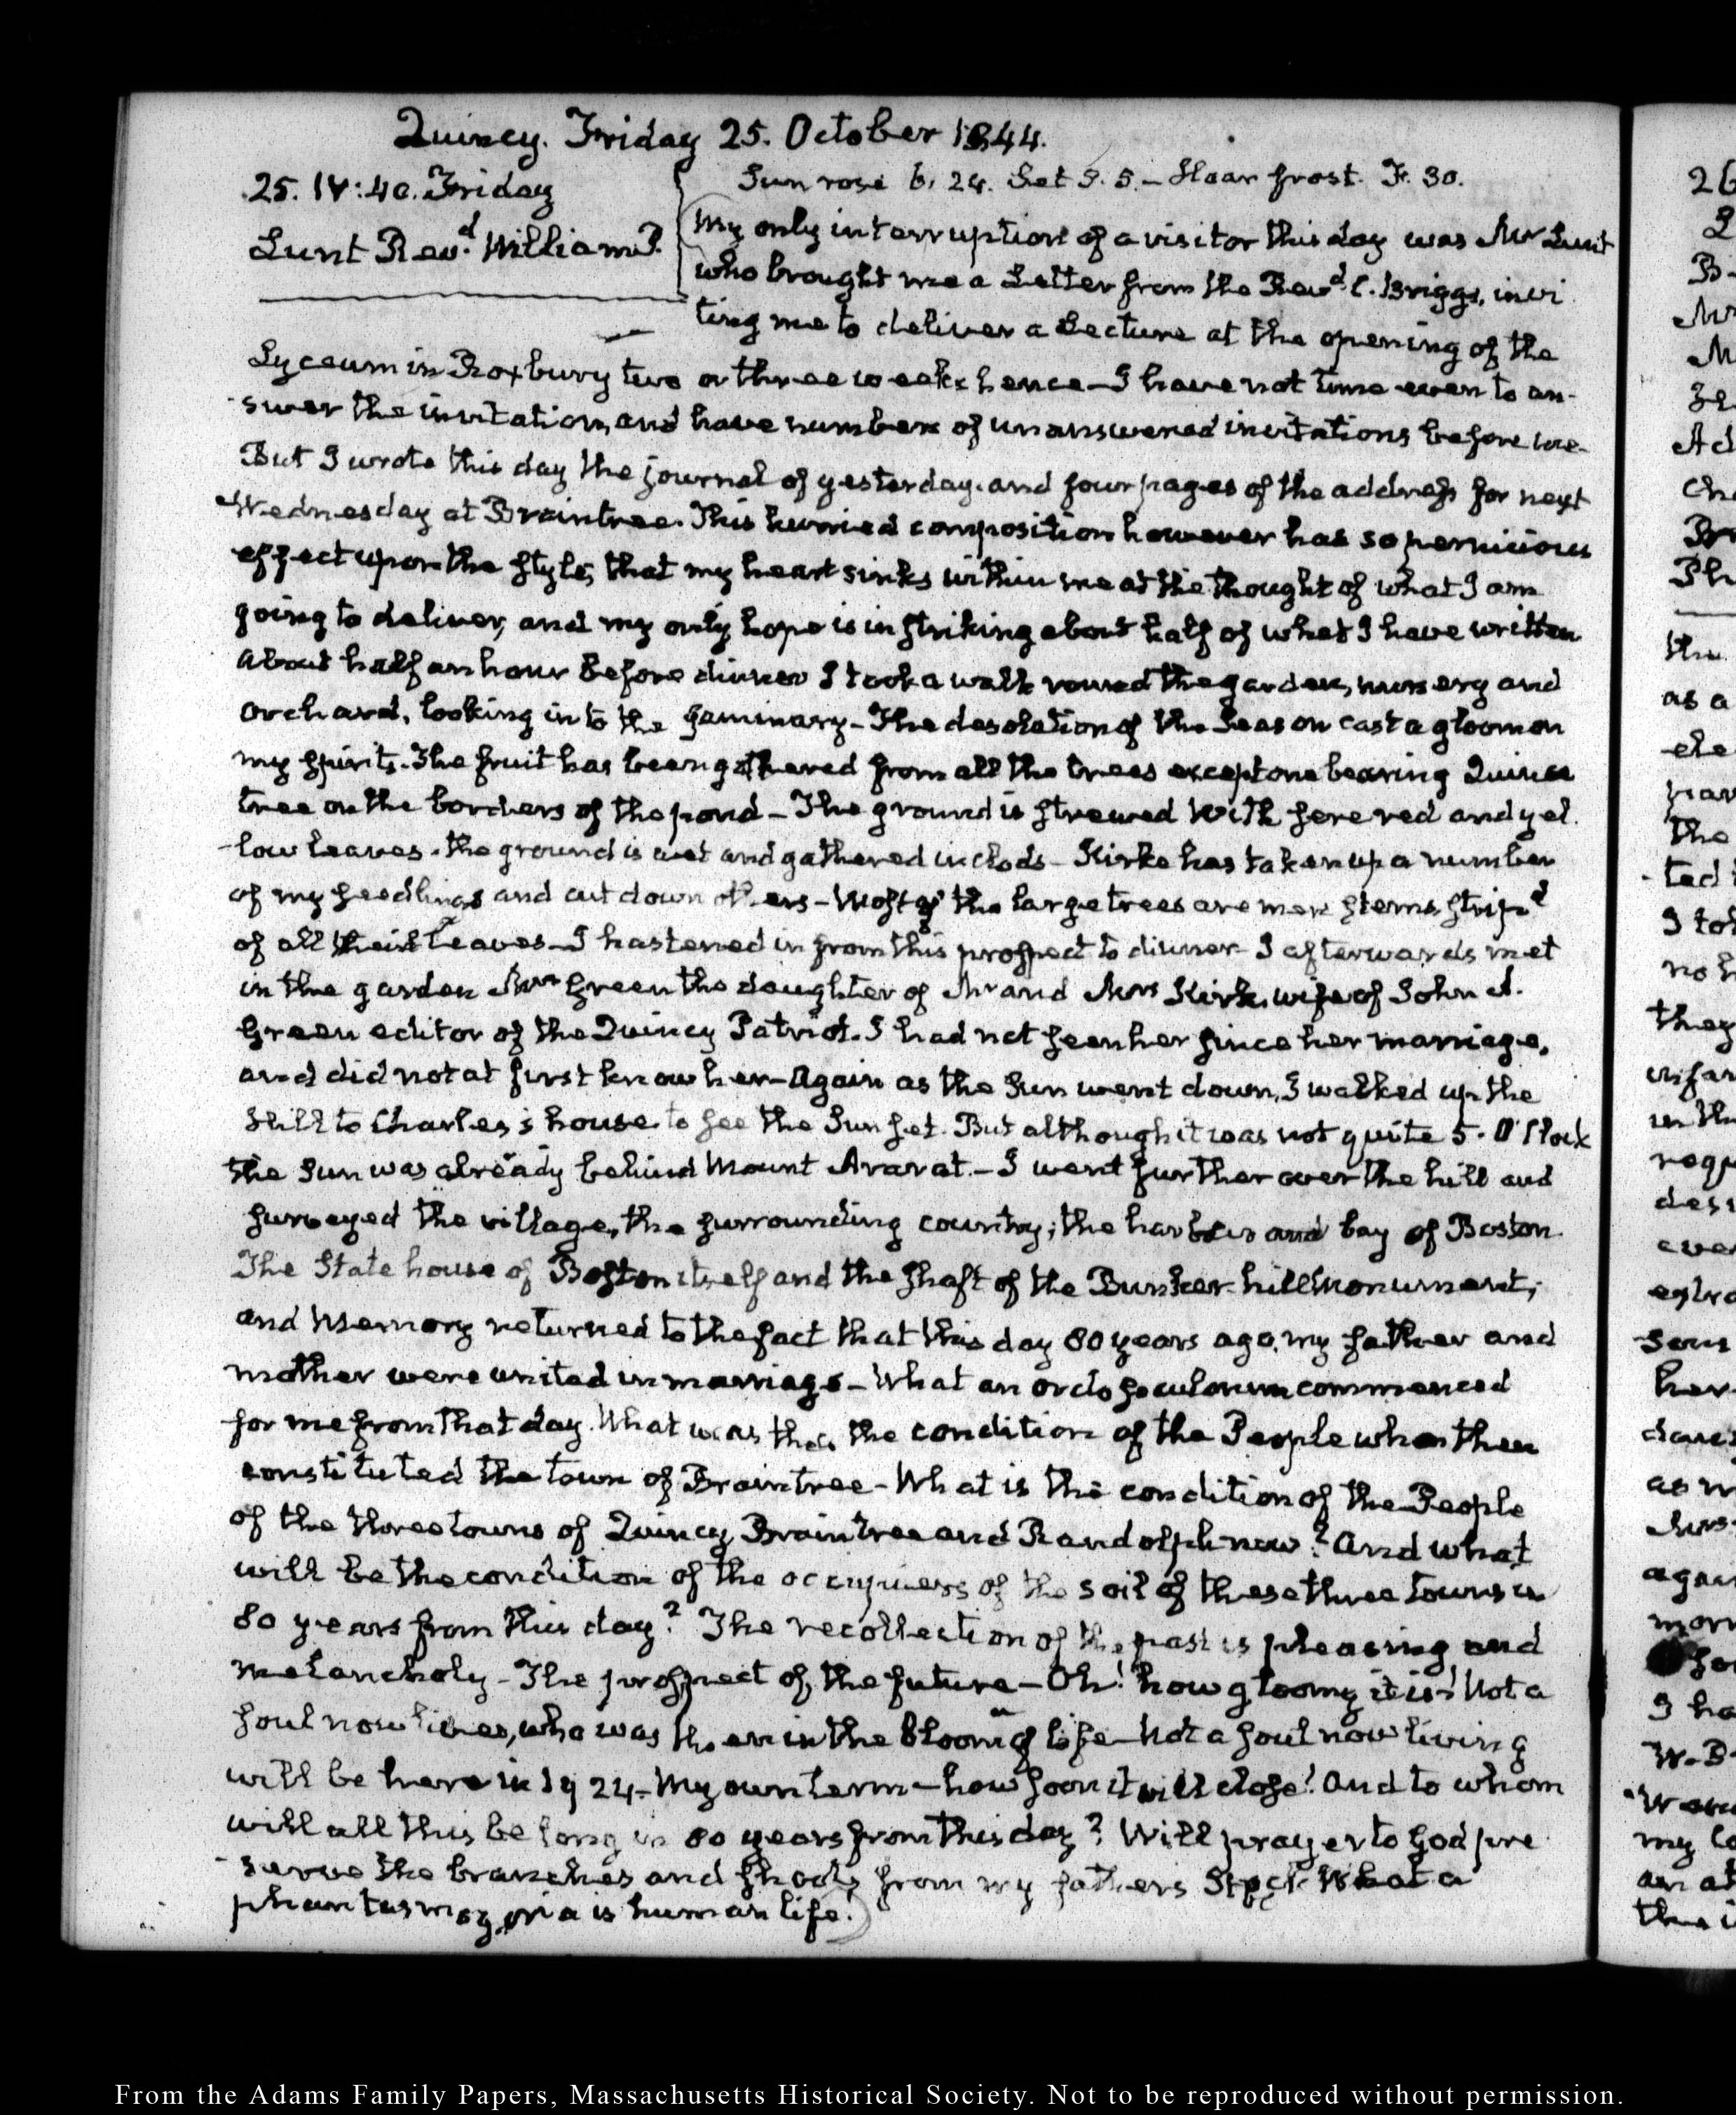 Quincy. Friday 25. October 1844.
25. IV:40. Friday
Lunt Revd. William P.
Sun rose 6. 24. Set 5. 5. — Hoar frost. F. 30.
My only interruption of a visitor this day was Mr Lunt
who brought me a Letter from the Revd. C. Briggs, invi
ting me to deliver a Lecture at the opening of the
Lyceum in Roxbury two or three weeks hence — I have not time even to an-
swer the invitation, and have numbers of unanswered invitations before me-
But I wrote this day the journal of yesterday. and four pages of the address for next
Wednesday at Braintree. This hurried composition however has so pernicious
effect upon the style, that my heart sinks within me at the thought of what I am
going to deliver, and my only hope is in striking about half of what I have written
About half an hour before dinner I took a walk round the garden, nursery and
orchard, looking into the Seminary — The desolation of the Season cast a gloom on
my spirits. The fruit has been gathered from all the trees except one bearing Quince
tree on the borders of the pond — The ground is strewed with sere red and yel.
-low leaves. the ground is wet and gathered in clods — Kirke has taken up a number
of my seedlings and cut down others — Most of the large trees are mere stems strip'd
of all their Leaves — I hastened in from this prospect to dinner — I afterwards met
in the garden Mrs Green the daughter of Mr and Mrs Kirk, wife of John A.
Green editor of the Quincy Patriot. I had not seen her since her marriage,
and did not at first know her — Again as the Sun went down, I walked up the
Hill to Charles's house to see the Sun set. But although it was not quite 5. O'Clock
the Sun was already behind Mount Ararat. — I went further over the hill and
surveyed the village, the surrounding country; the harbour and bay of Boston
The State house of Boston itself and the shaft of the Bunker-hill Monument;
and Memory returned to the fact that this day 80 years ago, my father and
mother were united in marriage — What an ordo seculorum commenced
for me from that day. What was then the condition of the People who then
constituted the town of Braintree — What is the condition of the People
of the three towns of Quincy Braintree and Randolph now? And what
will be the condition of the occupiers of the soil of these three towns in
80 years from this day? The recollection of the past is pleasing and
melancholy — The prospect of the future — Oh! how gloomy it is! Not a
soul now lives, who was then in the bloom of life — Not a soul now living
will be here in 1924 — My own term — how soon it will close! And to whom
will all this belong in 80 years from this day? Will prayer to God pre
-serve the branches and shoots from my fathers Stock What a
phantasmagoria is human life.)
From the Adams Family Papers, Massachusetts Historical Society. Not to be reproduced without permission.